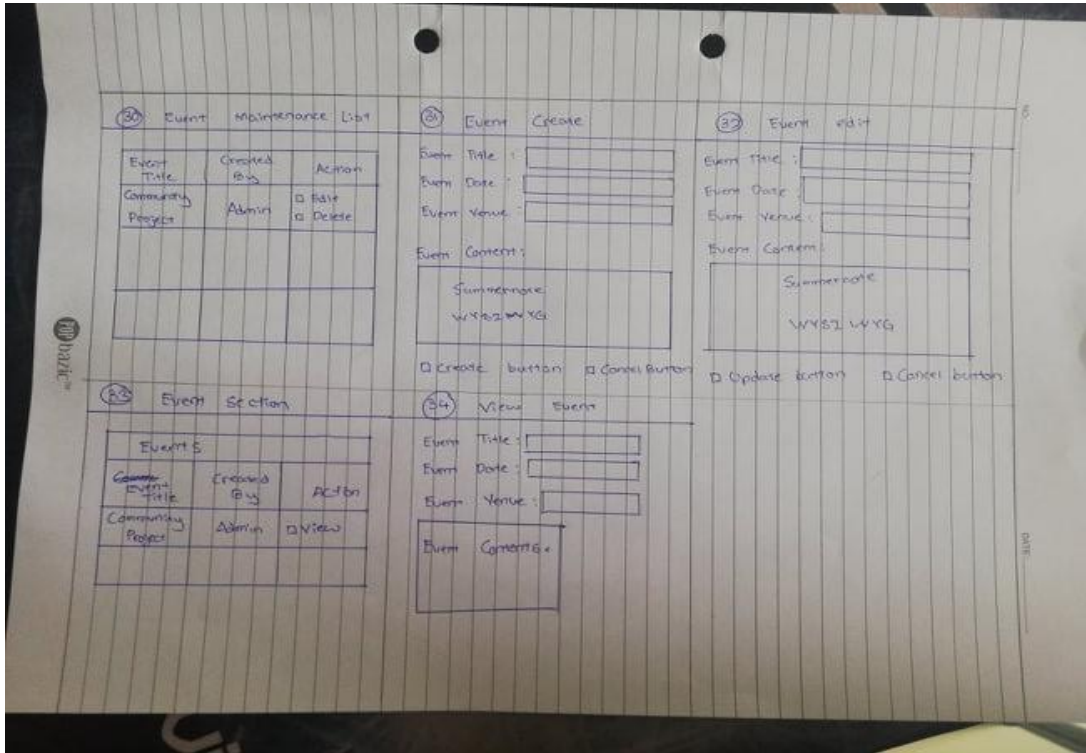 30 Event Maintenance List
Event Title
Created By
Action
Community Project
Admin
Edit
Delete
31 Event Create
Event Title :
Event Date :
Event Venue :
Event Content :
Summernote
WYSIWYG
Create button
Cancel Button
32 Event edit
Event Title :
Event Date :
Event Venue :
Event Content :
Summernote
WYSIWYG
Update button
Cancel button
33 Event Section
Events
Event Title
Created By
Action
Community Project
Admin
View
34 View Event
Event Title :
Event Date :
Event Venue :
Event Contents :
POP bazic
DATE: